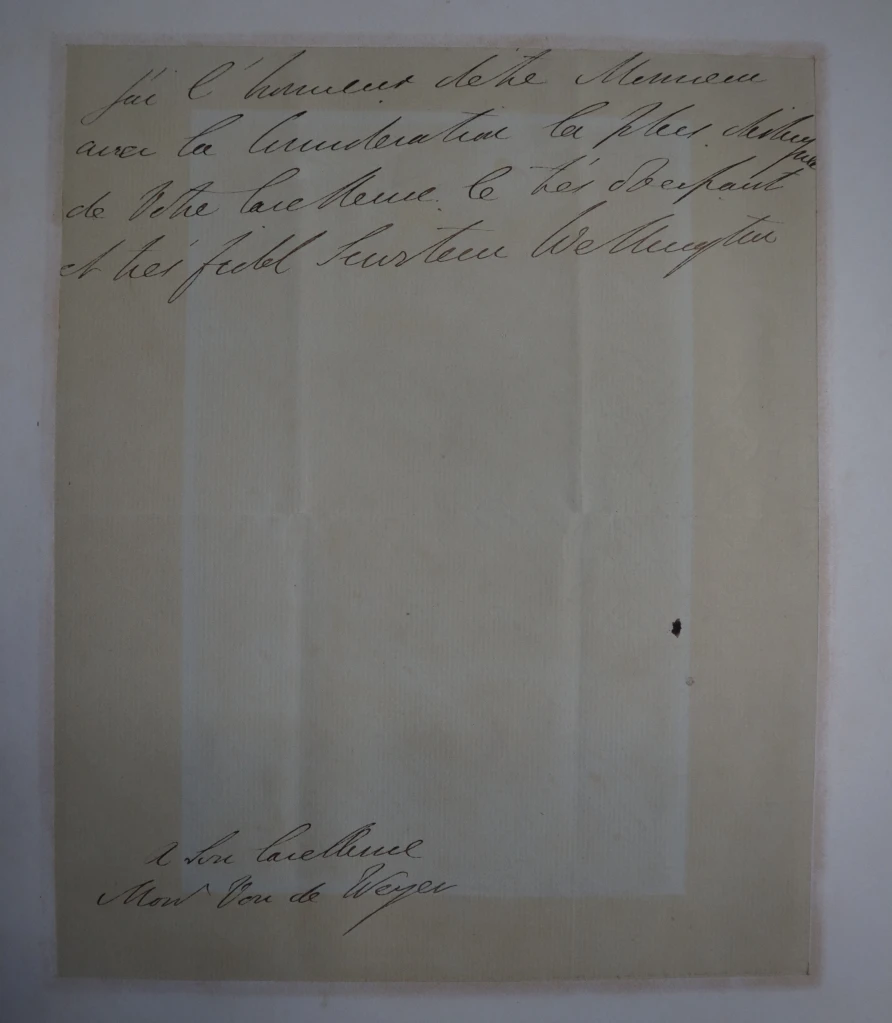 J'ai l'honneur d'être Monsieur
avec la Consideration la plus distinguée
de Votre Excellence le très obeissant
et très fidel Serviteur Wellington
A Son Excellence
Monr Van de Weyer